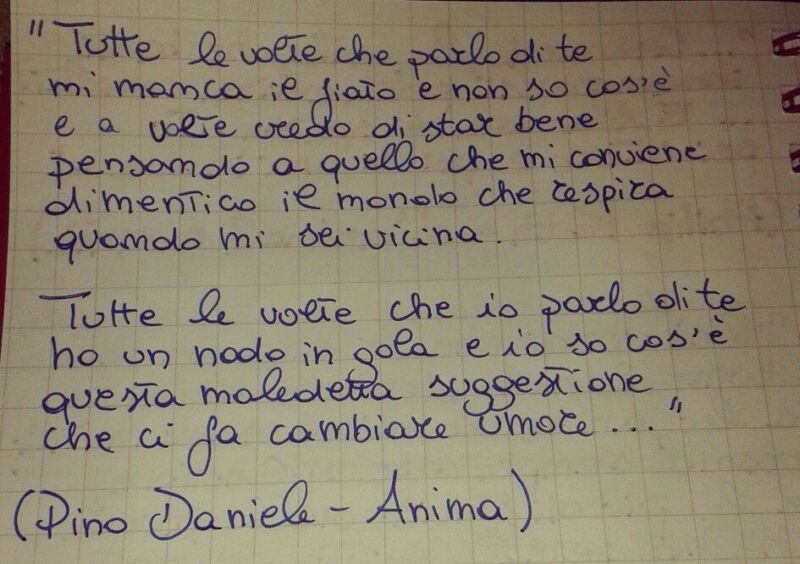 "Tutte le volte che parlo di te
mi manca il fiato e non so cos'è
e a volte credo di star bene
pensando a quello che mi conviene
dimentico il mondo che respira
quando mi sei vicina.
Tutte le volte che io parlo di te
ho un nodo in gola e io so cos'è
questa maledetta suggestione
che ci fa cambiare umore..."
(Pino Daniele - Anima)